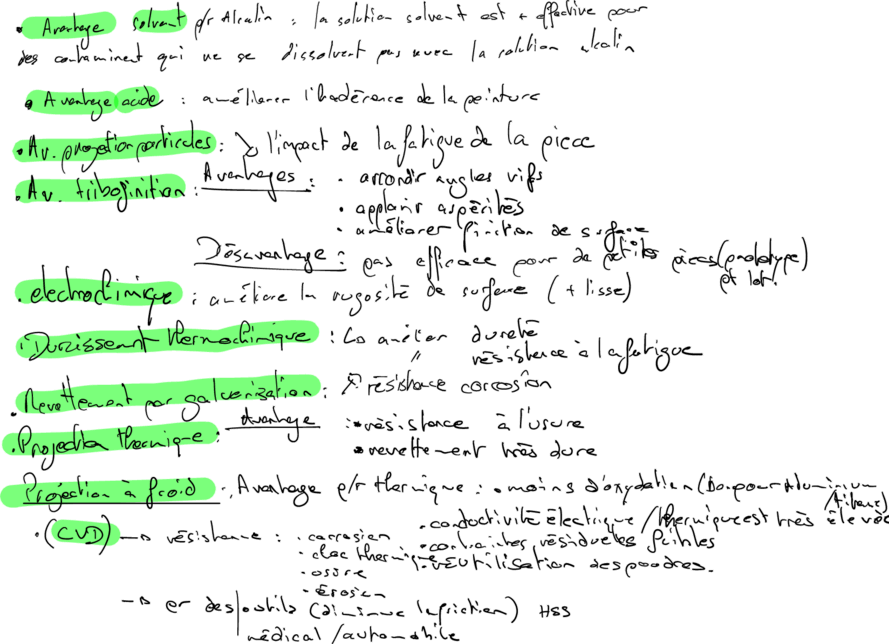 • Avantage solvant p/r Alcalin : la solution solvant est + effective pour
des contaminent qui ne se dissolvent pas avec la solution alcalin
• Avantage acide : améliorer l'hadérence de la peinture
• Av. projection particules : ↘ l'impact de la fatigue de la piece
• Av. tribofinition : Avantages : • arrondir angles vifs
• applanir aspérités
• améliorer finition de surface
Désavantage : pas efficace pour de petites pièces (prototype)
et lot.
• electrochimique : améliore la rugosité de surface (+ lisse)
• Durcissement thermochimique : améliorer dureté
" résistance à la fatigue
• Revettement par galvanization : ↗ résistance corrosion
• Projection thermique : Avantage : • résistance à l'usure
• revettement très dure
Projection à froid : Avantage p/r thermique : • moins d'oxydation (Bon pour Aluminium
/titane)
• conductivité électrique / thermique est très élevée
• (CVD) → résistance : • corrosion • contraintes résiduelles faibles
• choc thermique • réutilisation des poudres.
• usure
• érosion
→ des outils (diminue la friction) HSS
médical / automobile